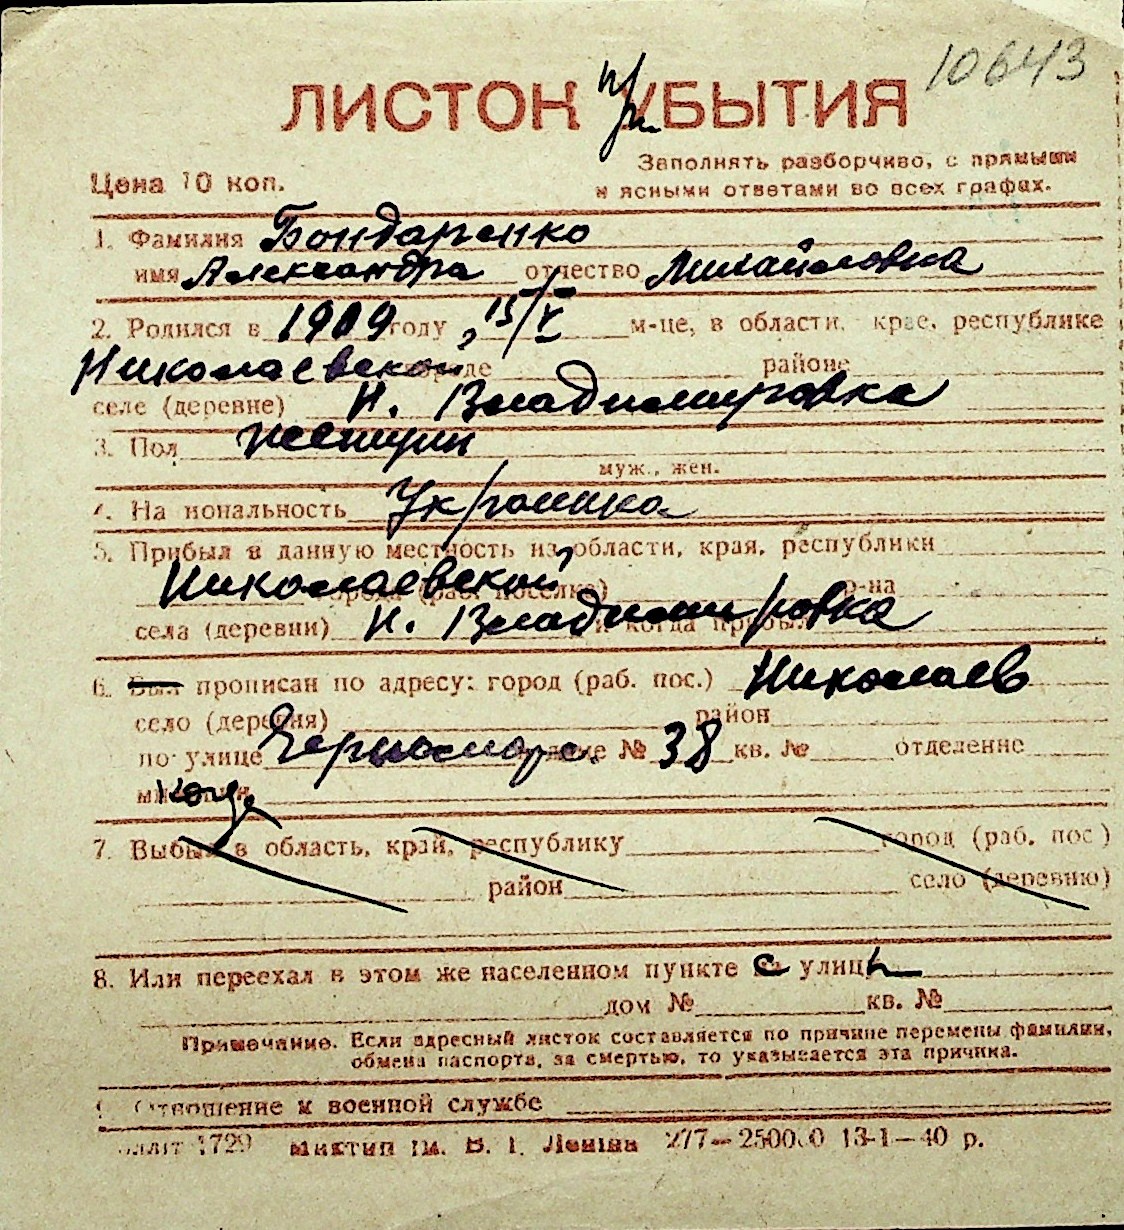 10643
ЛИСТОК УБЫТИЯ
Заполнять разборчиво, с прямыми
Цена 10 коп.
и ясными ответами во всех графах.
1. Фамилия Бондаренко
имя Александра отчество Михайловна
2. Родился в 1909 году, 15/V м-це, в области, крае, республике
Николаевской городе районе
селе (деревне) Н. Владимировка
3. Пол женщин
муж., жен.
4. Национальность Украинка
5. Прибыл в данную местность из области, края, республики
Николаевской города (раб. поселка) р-на
села (деревни) Н. Владимировка и когда прибыл
6. Был прописан по адресу: город (раб. пос.) Николаев
село (деревня) район
по улице Черноморс. доме № 38 кв. № отделение
милиции
7. Выбыл в область, край, республику город (раб. пос.)
район село (деревню)
8. Или переехал в этом же населенном пункте с улицы
дом № кв. №
Примечание. Если адресный листок составляется по причине перемены фамилии,
обмена паспорта, за смертью, то указывается эта причина.
9. Отношение к военной службе
1729 Миктип ім. В. І. Леніна 277—250000 13-1—40 р.